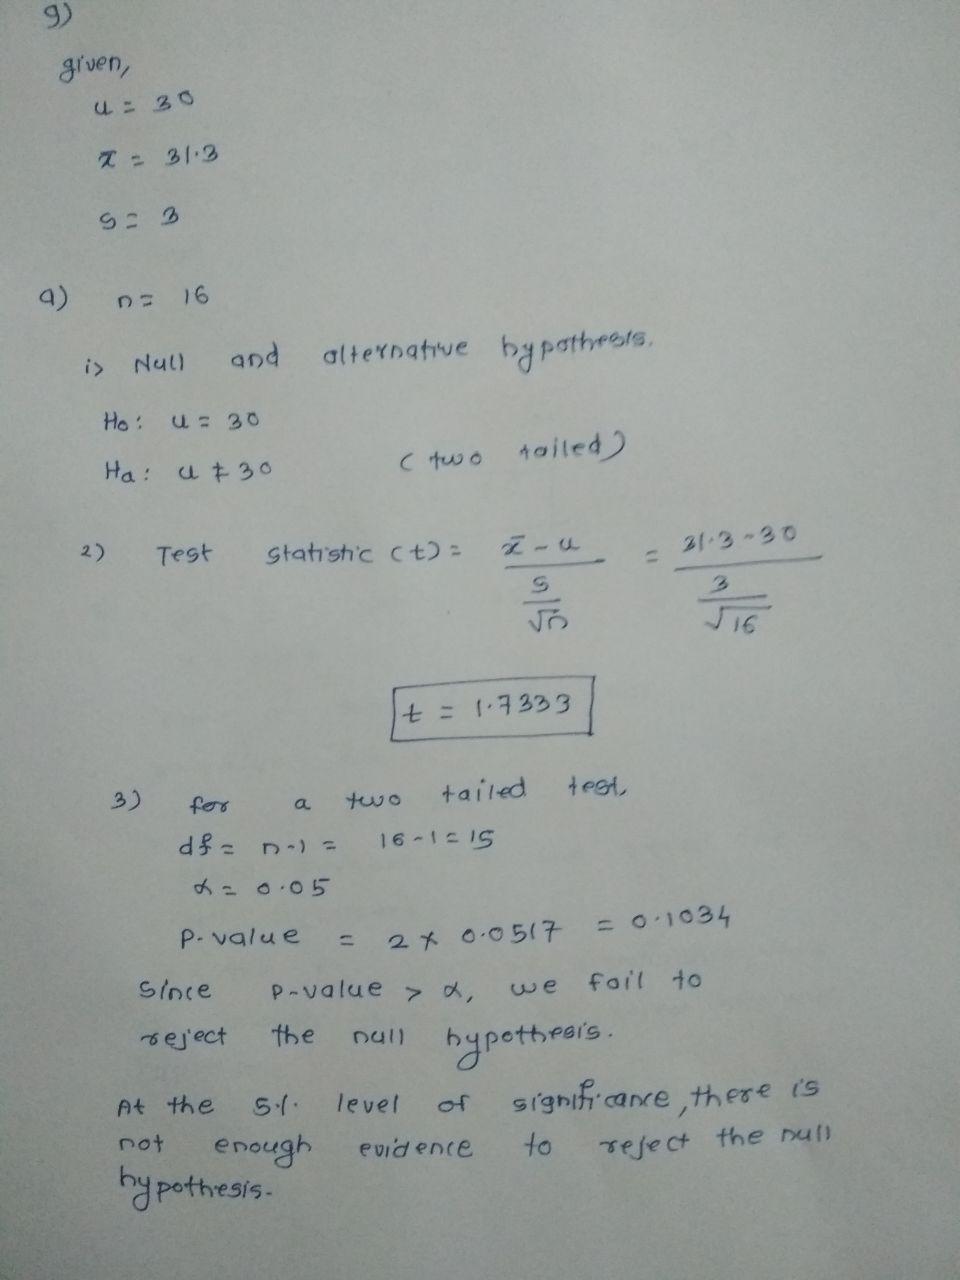 9)
given,
u = 30
x̄ = 31.3
s = 3
a) n = 16
i> Null and alternative hypothesis.
Ho: u = 30
Ha: u ≠ 30 (two tailed)
2) Test statistic (t) = x̄ - u / s/√n = 31.3-30 / 3/√16
t = 1.7333
3) for a two tailed test,
df = n-1 = 16-1 = 15
α = 0.05
P-value = 2 × 0.0517 = 0.1034
Since P-value > α, we fail to
reject the null hypothesis.
At the 5% level of significance, there is
not enough evidence to reject the null
hypothesis.